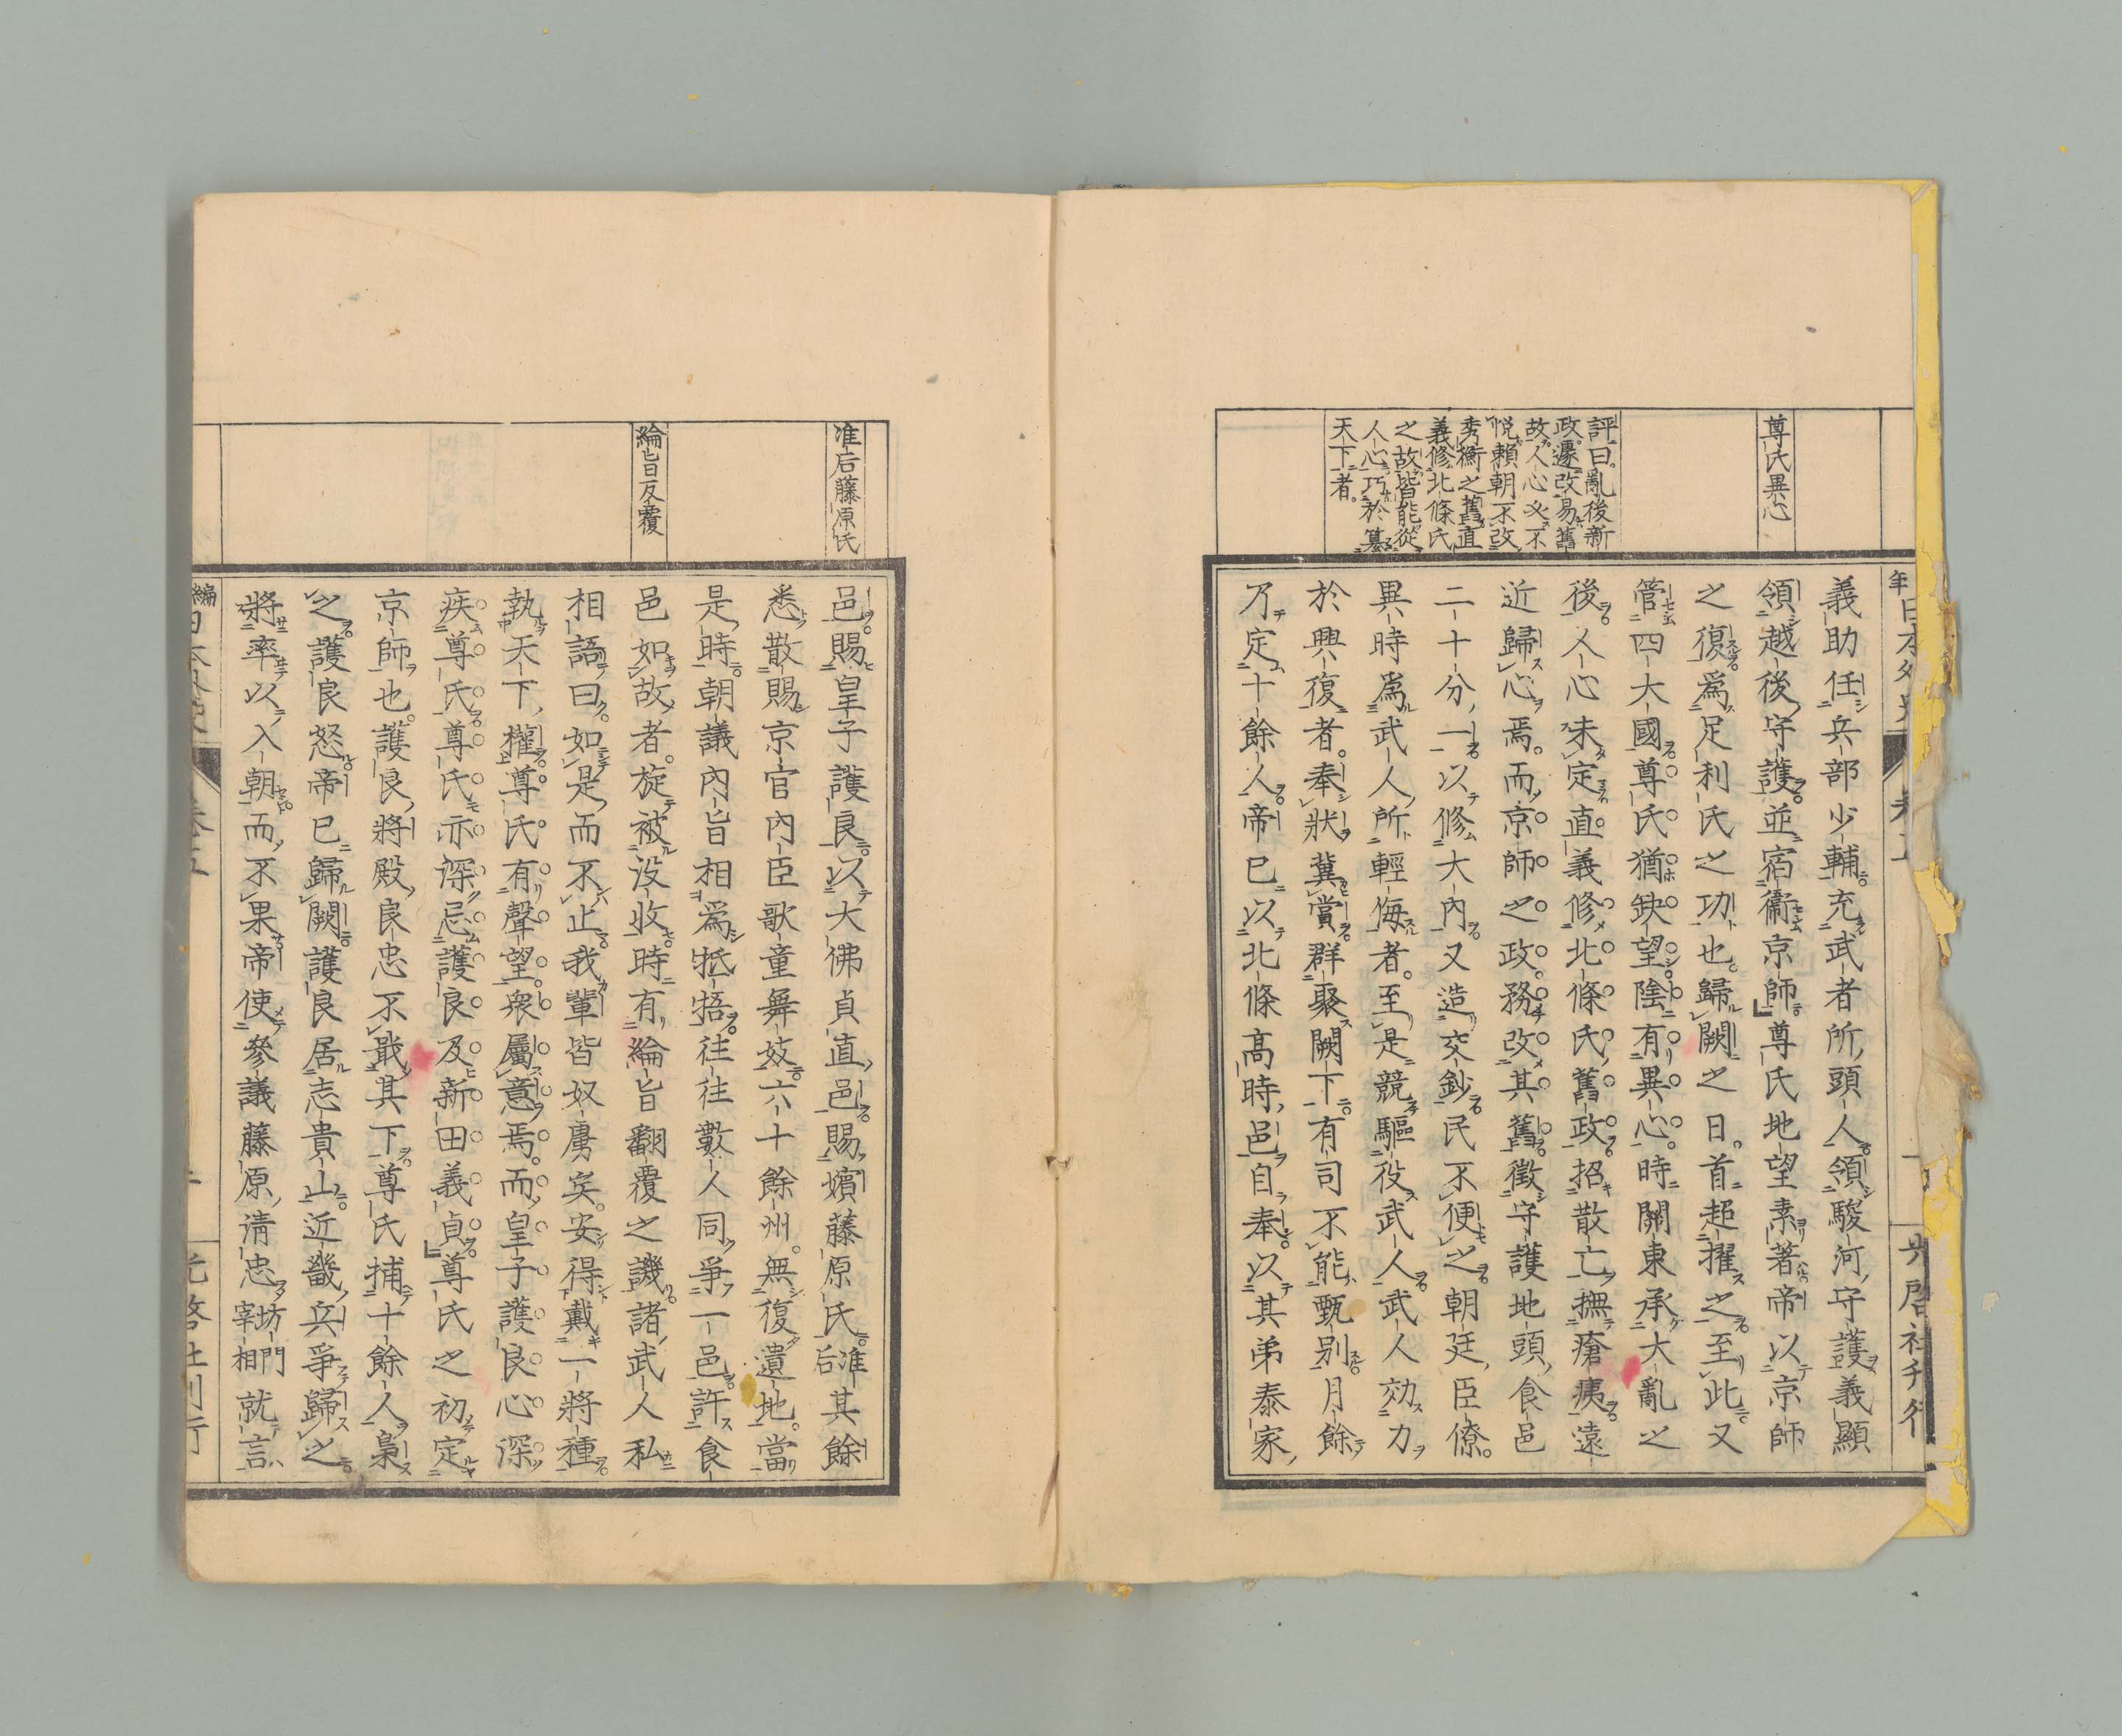 尊氏異心
評曰亂後新
政遷改易舊
故人心必不
悅賴朝不改
秀衡之舊直
義修北條氏
之故皆能從
人心巧於簒
天下者
義助任兵部少輔充武者所頭人領駿河守護義顯
領越後守護並宿衞京師尊氏地望素著帝以京師
之復爲足利氏之功也歸闕之日首超擢之至此又
管四大國尊氏猶缺望陰有異心時關東承大亂之
後人心未定直義修北條氏舊政招散亡撫瘡痍遠
近歸心焉而京師之政務改其舊徵守護地頭食邑
二十分一以修大內又造交鈔民不便之朝廷臣僚
異時爲武人所輕侮者至是競驅役武人武人効力
於興復者奉狀冀賞群聚闕下有司不能甄别月餘
乃定十餘人帝已以北條高時邑自奉以其弟泰家
准后藤原氏
綸旨反覆
邑賜皇子護良以大佛貞直邑賜嬪藤原氏准后其餘
悉散賜京官內臣歌童舞妓六十餘州無復遺地當
是時朝議內旨相爲牴牾往往數人同爭一邑許食
邑如故者旋被没收時有綸旨翻覆之譏諸武人私
相語曰如是而不止我輩皆奴虜矣安得戴一將種
執天下權尊氏有聲望衆屬意焉而皇子護良心深
疾尊氏尊氏亦深忌護良及新田義貞尊氏之初定
京師也護良將殿良忠不戢其下尊氏捕十餘人梟
之護良怒帝已歸闕護良居志貴山近畿兵爭歸之
將率以入朝而不果帝使參議藤原清忠坊門宰相就言